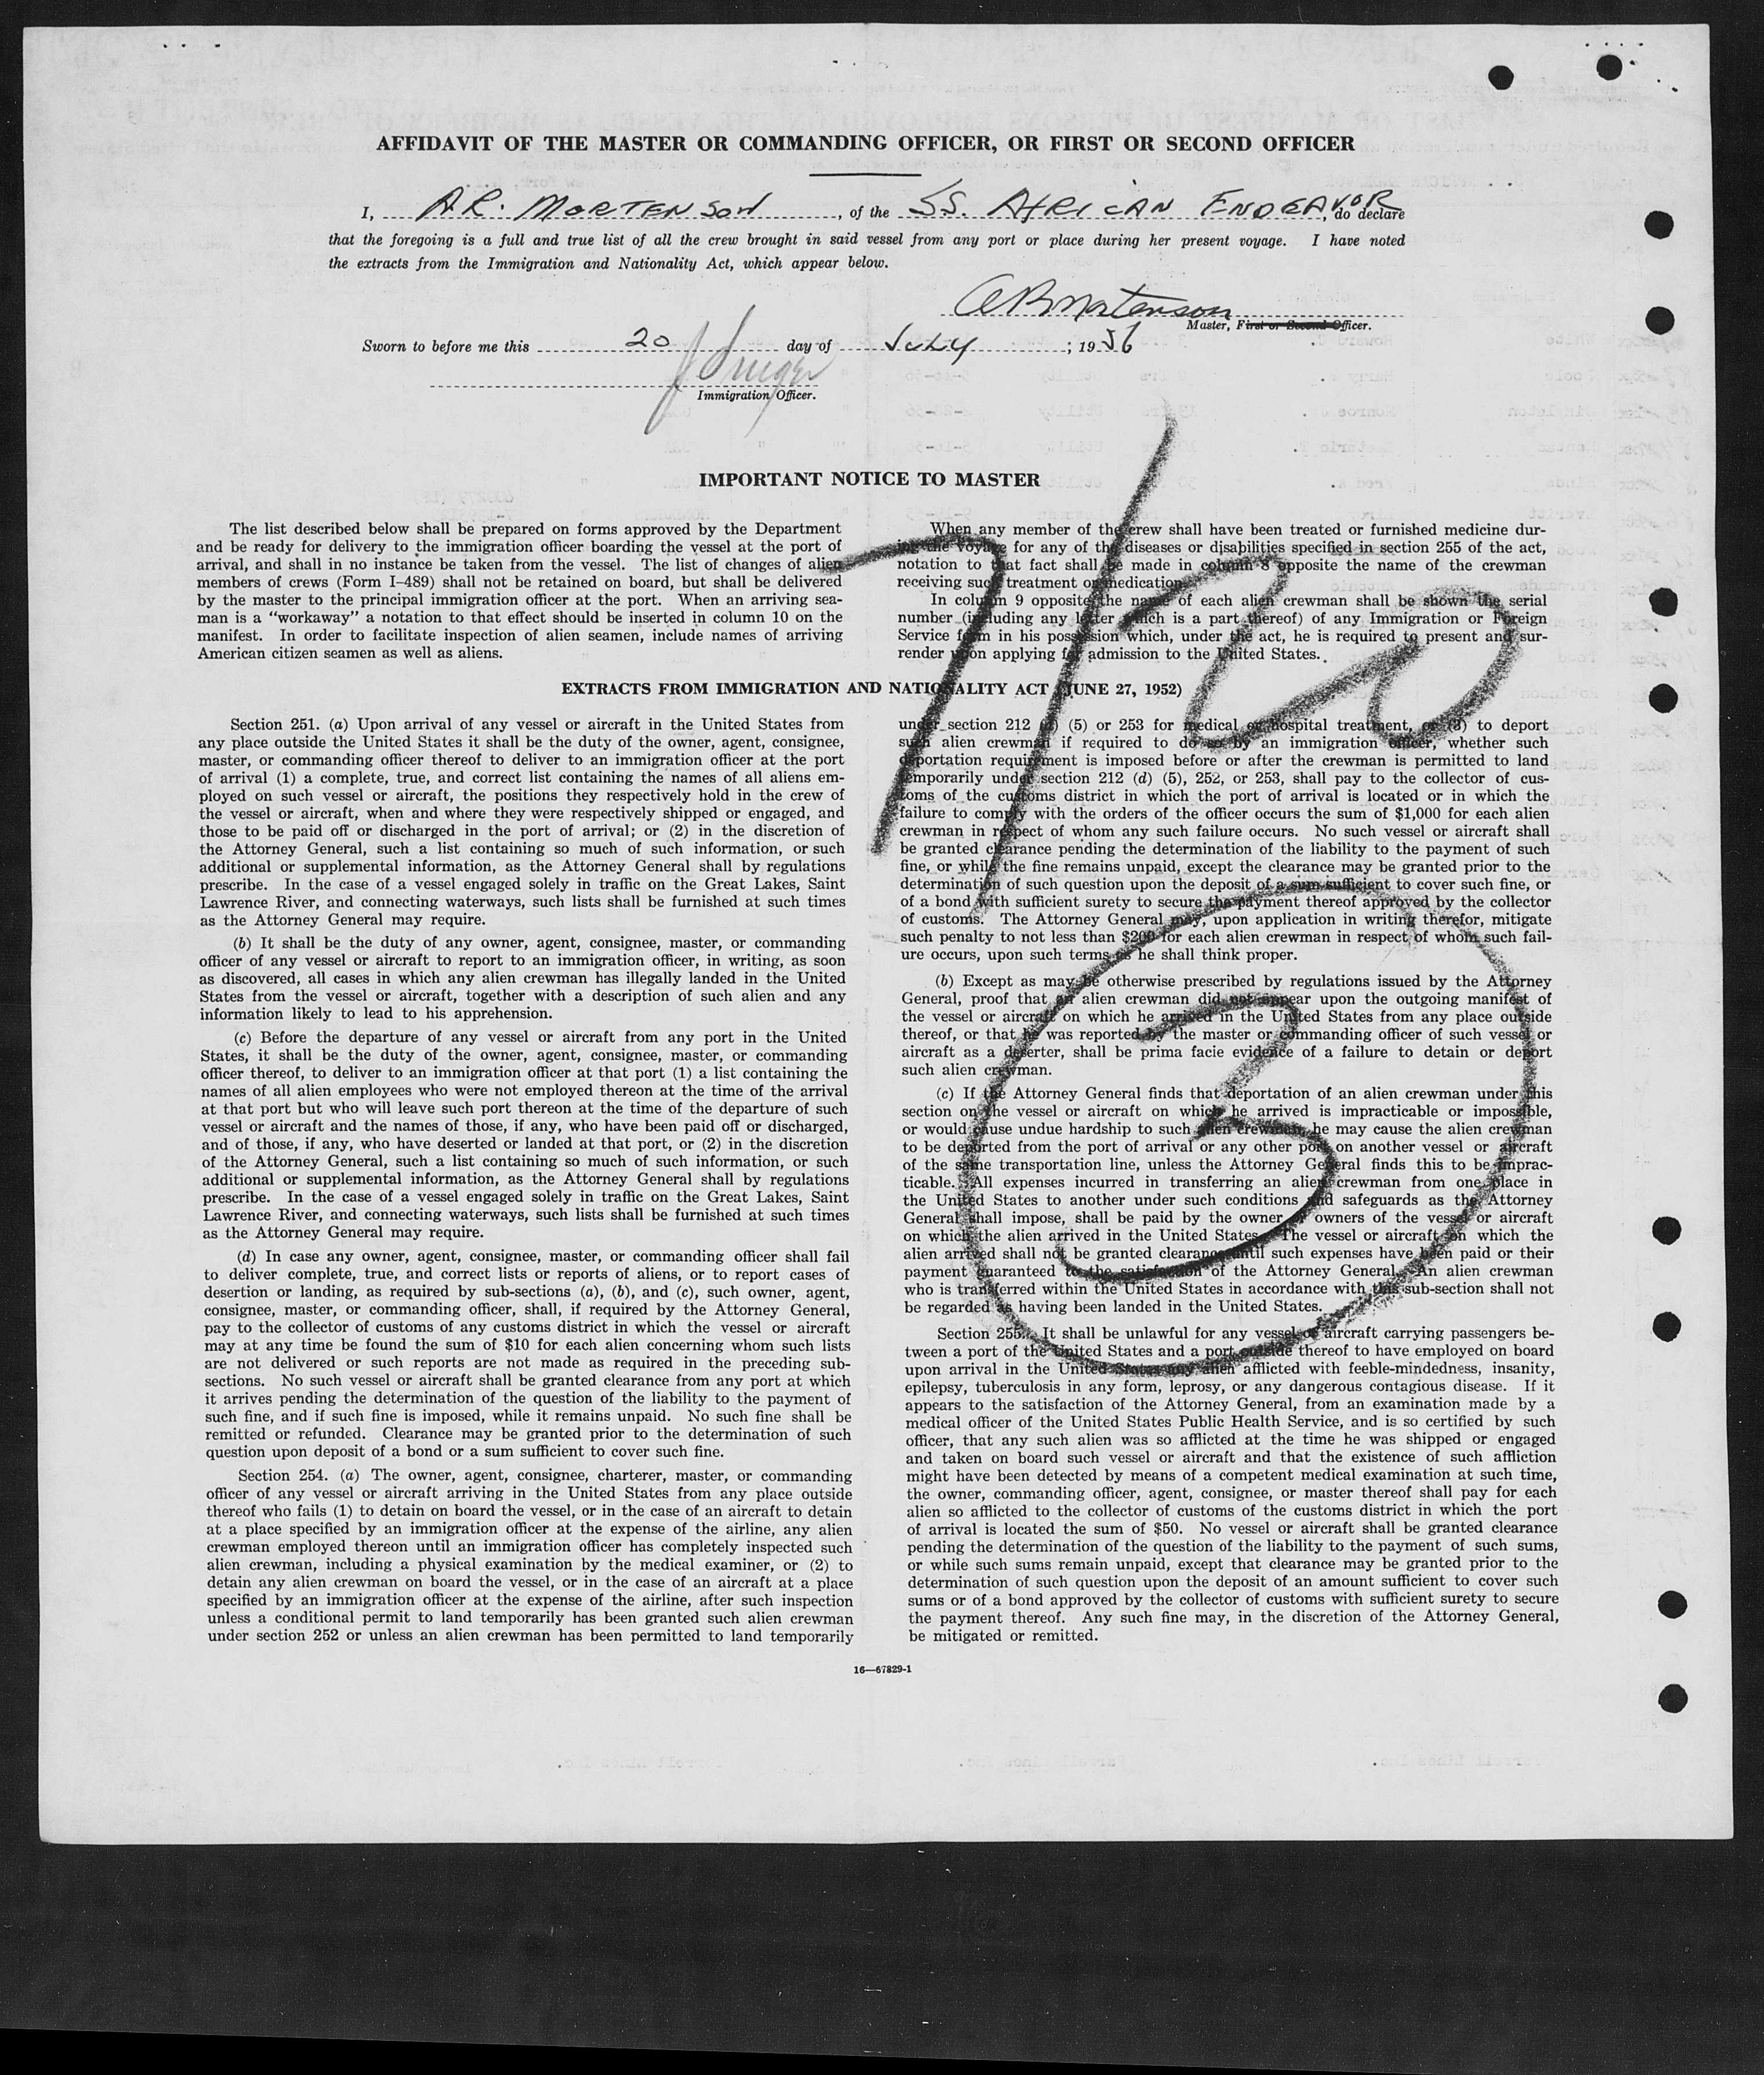 AFFIDAVIT OF THE MASTER OR COMMANDING OFFICER, OR FIRST OR SECOND OFFICER
I, A.R. MORTENSON, of the S.S. AFRICAN ENDEAVOR, do declare
that the foregoing is a full and true list of all the crew brought in said vessel from any port or place during her present voyage. I have noted
the extracts from the Immigration and Nationality Act, which appear below.
A R Mortenson
Master, First or Second Officer.
Sworn to before me this 20 day of July ; 1956
Immigration Officer.
IMPORTANT NOTICE TO MASTER
The list described below shall be prepared on forms approved by the Department
and be ready for delivery to the immigration officer boarding the vessel at the port of
arrival, and shall in no instance be taken from the vessel. The list of changes of alien
members of crews (Form I–489) shall not be retained on board, but shall be delivered
by the master to the principal immigration officer at the port. When an arriving sea-
man is a “workaway” a notation to that effect should be inserted in column 10 on the
manifest. In order to facilitate inspection of alien seamen, include names of arriving
American citizen seamen as well as aliens.
When any member of the crew shall have been treated or furnished medicine dur-
ing the voyage for any of the diseases or disabilities specified in section 255 of the act,
notation to that fact shall be made in column 8 opposite the name of the crewman
receiving such treatment or medication.
In column 9 opposite the name of each alien crewman shall be shown the serial
number (including any letter which is a part thereof) of any Immigration or Foreign
Service form in his possession which, under the act, he is required to present and sur-
render upon applying for admission to the United States.
7/20
3
EXTRACTS FROM IMMIGRATION AND NATIONALITY ACT (JUNE 27, 1952)
Section 251. (a) Upon arrival of any vessel or aircraft in the United States from
any place outside the United States it shall be the duty of the owner, agent, consignee,
master, or commanding officer thereof to deliver to an immigration officer at the port
of arrival (1) a complete, true, and correct list containing the names of all aliens em-
ployed on such vessel or aircraft, the positions they respectively hold in the crew of
the vessel or aircraft, when and where they were respectively shipped or engaged, and
those to be paid off or discharged in the port of arrival; or (2) in the discretion of
the Attorney General, such a list containing so much of such information, or such
additional or supplemental information, as the Attorney General shall by regulations
prescribe. In the case of a vessel engaged solely in traffic on the Great Lakes, Saint
Lawrence River, and connecting waterways, such lists shall be furnished at such times
as the Attorney General may require.
(b) It shall be the duty of any owner, agent, consignee, master, or commanding
officer of any vessel or aircraft to report to an immigration officer, in writing, as soon
as discovered, all cases in which any alien crewman has illegally landed in the United
States from the vessel or aircraft, together with a description of such alien and any
information likely to lead to his apprehension.
(c) Before the departure of any vessel or aircraft from any port in the United
States, it shall be the duty of the owner, agent, consignee, master, or commanding
officer thereof, to deliver to an immigration officer at that port (1) a list containing the
names of all alien employees who were not employed thereon at the time of the arrival
at that port but who will leave such port thereon at the time of the departure of such
vessel or aircraft and the names of those, if any, who have been paid off or discharged,
and of those, if any, who have deserted or landed at that port, or (2) in the discretion
of the Attorney General, such a list containing so much of such information, or such
additional or supplemental information, as the Attorney General shall by regulations
prescribe. In the case of a vessel engaged solely in traffic on the Great Lakes, Saint
Lawrence River, and connecting waterways, such lists shall be furnished at such times
as the Attorney General may require.
(d) In case any owner, agent, consignee, master, or commanding officer shall fail
to deliver complete, true, and correct lists or reports of aliens, or to report cases of
desertion or landing, as required by sub-sections (a), (b), and (c), such owner, agent,
consignee, master, or commanding officer, shall, if required by the Attorney General,
pay to the collector of customs of any customs district in which the vessel or aircraft
may at any time be found the sum of $10 for each alien concerning whom such lists
are not delivered or such reports are not made as required in the preceding sub-
sections. No such vessel or aircraft shall be granted clearance from any port at which
it arrives pending the determination of the question of the liability to the payment of
such fine, and if such fine is imposed, while it remains unpaid. No such fine shall be
remitted or refunded. Clearance may be granted prior to the determination of such
question upon deposit of a bond or a sum sufficient to cover such fine.
Section 254. (a) The owner, agent, consignee, charterer, master, or commanding
officer of any vessel or aircraft arriving in the United States from any place outside
thereof who fails (1) to detain on board the vessel, or in the case of an aircraft to detain
at a place specified by an immigration officer at the expense of the airline, any alien
crewman employed thereon until an immigration officer has completely inspected such
alien crewman, including a physical examination by the medical examiner, or (2) to
detain any alien crewman on board the vessel, or in the case of an aircraft at a place
specified by an immigration officer at the expense of the airline, after such inspection
unless a conditional permit to land temporarily has been granted such alien crewman
under section 252 or unless an alien crewman has been permitted to land temporarily
under section 212 (d) (5) or 253 for medical or hospital treatment, or (3) to deport
such alien crewman if required to do so by an immigration officer, whether such
deportation requirement is imposed before or after the crewman is permitted to land
temporarily under section 212 (d) (5), 252, or 253, shall pay to the collector of cus-
toms of the customs district in which the port of arrival is located or in which the
failure to comply with the orders of the officer occurs the sum of $1,000 for each alien
crewman in respect of whom any such failure occurs. No such vessel or aircraft shall
be granted clearance pending the determination of the liability to the payment of such
fine, or while the fine remains unpaid, except the clearance may be granted prior to the
determination of such question upon the deposit of a sum sufficient to cover such fine, or
of a bond with sufficient surety to secure the payment thereof approved by the collector
of customs. The Attorney General may, upon application in writing therefor, mitigate
such penalty to not less than $200 for each alien crewman in respect of whom such fail-
ure occurs, upon such terms as he shall think proper.
(b) Except as may be otherwise prescribed by regulations issued by the Attorney
General, proof that an alien crewman did not appear upon the outgoing manifest of
the vessel or aircraft on which he arrived in the United States from any place outside
thereof, or that he was reported by the master or commanding officer of such vessel or
aircraft as a deserter, shall be prima facie evidence of a failure to detain or deport
such alien crewman.
(c) If the Attorney General finds that deportation of an alien crewman under this
section on the vessel or aircraft on which he arrived is impracticable or impossible,
or would cause undue hardship to such alien crewman, he may cause the alien crewman
to be deported from the port of arrival or any other port on another vessel or aircraft
of the same transportation line, unless the Attorney General finds this to be imprac-
ticable. All expenses incurred in transferring an alien crewman from one place in
the United States to another under such conditions and safeguards as the Attorney
General shall impose, shall be paid by the owner or owners of the vessel or aircraft
on which the alien arrived in the United States. The vessel or aircraft on which the
alien arrived shall not be granted clearance until such expenses have been paid or their
payment guaranteed to the satisfaction of the Attorney General. An alien crewman
who is transferred within the United States in accordance with this sub-section shall not
be regarded as having been landed in the United States.
Section 255. It shall be unlawful for any vessel or aircraft carrying passengers be-
tween a port of the United States and a port outside thereof to have employed on board
upon arrival in the United States any alien afflicted with feeble-mindedness, insanity,
epilepsy, tuberculosis in any form, leprosy, or any dangerous contagious disease. If it
appears to the satisfaction of the Attorney General, from an examination made by a
medical officer of the United States Public Health Service, and is so certified by such
officer, that any such alien was so afflicted at the time he was shipped or engaged
and taken on board such vessel or aircraft and that the existence of such affliction
might have been detected by means of a competent medical examination at such time,
the owner, commanding officer, agent, consignee, or master thereof shall pay for each
alien so afflicted to the collector of customs of the customs district in which the port
of arrival is located the sum of $50. No vessel or aircraft shall be granted clearance
pending the determination of the question of the liability to the payment of such sums,
or while such sums remain unpaid, except that clearance may be granted prior to the
determination of such question upon the deposit of an amount sufficient to cover such
sums or of a bond approved by the collector of customs with sufficient surety to secure
the payment thereof. Any such fine may, in the discretion of the Attorney General,
be mitigated or remitted.
16—67829-1